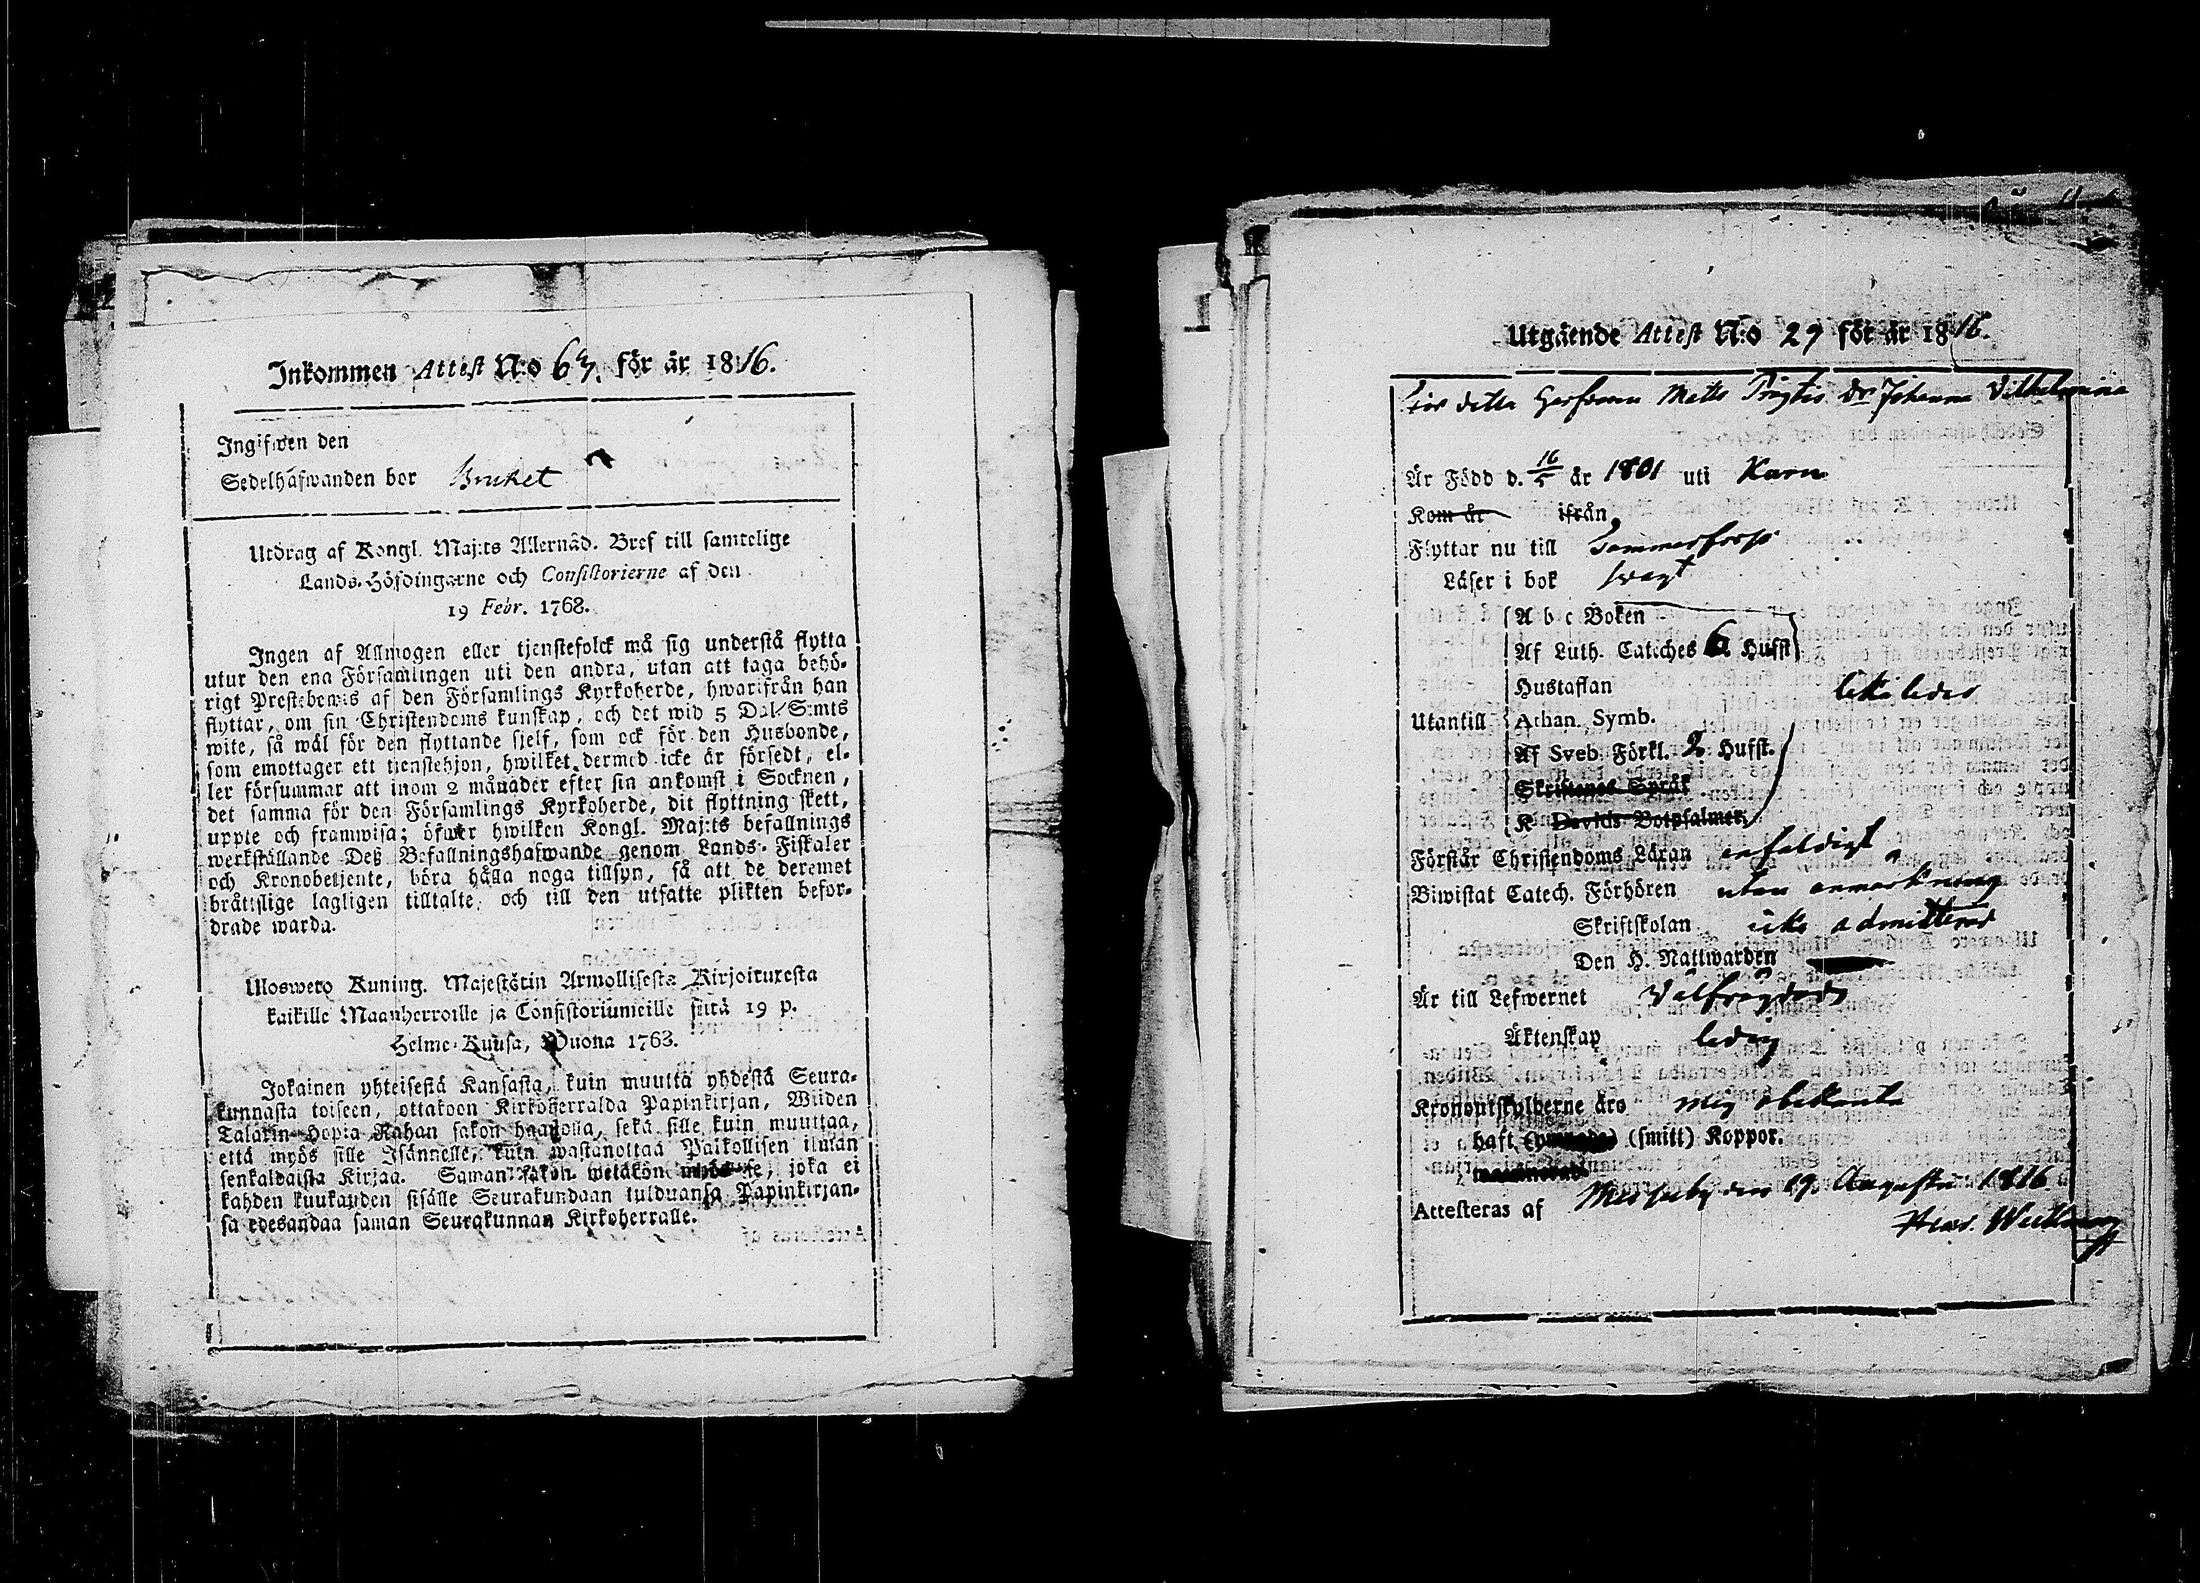 Inkommen Attest N:o 67. för år 1816.
Ingifwen den
Sedelhafwanden bor Bruket
Utdrag af Kongl. Maj:ts Allernåd. Bref till samtelige
Lands-Höfdingarne och Consistorierne af den
19 Febr. 1768.
Ingen af Allmogen eller tjenstefolck må sig understå flytta
utur den ena Församlingen uti den andra, utan att taga behö-
rigt Prestebewis af den Församlings Kyrkoherde, hwarifrån han
flyttar, om sin Christendoms kunskap, och det wid 5 Dal. S:mts
wite, så wäl för den flyttande sjelf, som ock för den Husbonde,
som emottager ett tjenstehjon, hwilket dermed icke är försedt, el-
ler försummar att inom 2 månader efter sin ankomst i Socknen,
det samma för den Församlings Kyrkoherde, dit flyttning skett,
uppte och framwisa; öfwer hwilken Kongl. Maj:ts befallnings
werkställande Deß Befallningshafwande genom Lands-Fiskaler
och Kronobetjente, böra hålla noga tillsyn, så att de deremot
bråttslige lagligen tilltalte, och till den utsatte plikten befor-
drade warda.
Uloswetο Kuning. Majestätin Armollisesta Kirjoituxesta
kaikille Maanherroille ja Consistoriumeille siitä 19 p.
Helme-Kuusa, Wuona 1763.
Jokainen yhteisestä Kansasta, kuin muutta yhdestä Seura-
kunnasta toiseen, ottakoon Kirkoherralda Papinkirjan, Wiiden
Talarin Hopia Rahan sakon haastolla, sekä sille kuin muuttaa,
että myös sille Isännelle, kuin wastanottaa Palkollisen ilman
senkaldaista Kirjaa. Saman sakon wetäkön myös se, joka ei
kahden kuukauden sisälle Seurakundaan tulduansa Papinkirjan-
sa edesandaa saman Seurakunnan Kirkoherralle.
Utgående Attest N:o 29 för år 1816.
Matts Dr Johanna Vilhelmina
Är Född d. 16/5 år 1801 uti Karis
Kom år ifrån
Flyttar nu till
Läser i bok swagt
A b c Boken
Af Luth. Cateches 6 Hufst
Hustaflan
Utantill Athan. Symb.
Af Sveb. Förkl. 2 Hufst.
Skriftenes Språk
K Davids Botpsalmer
Förstår Christendoms Läran enfaldigt
Biwistat Catech. Förhören utan anmärkning
Skriftskolan icke admitterad
Den H. Nattwarden
Är till Lefwernet Välfrägdad
Äktenskap ledig
Kronoutskylderne äro mig obekante
haft (smitt) Koppor.
Attesteras af den 19. Augusti 1816